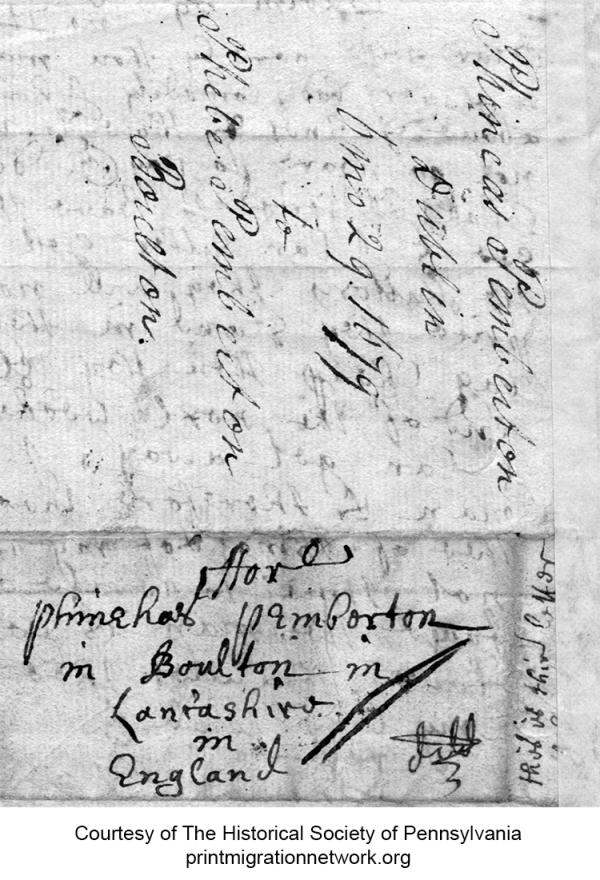 Phineas Pemberton
Dublin
mo 29 1679
to
Phebe Pemberton
Boulton.
ffor
phinehas pemberton
in Boulton in
Lancashire
in
England
this is third letter
Courtesy of The Historical Society of Pennsylvania
printmigrationnetwork.org